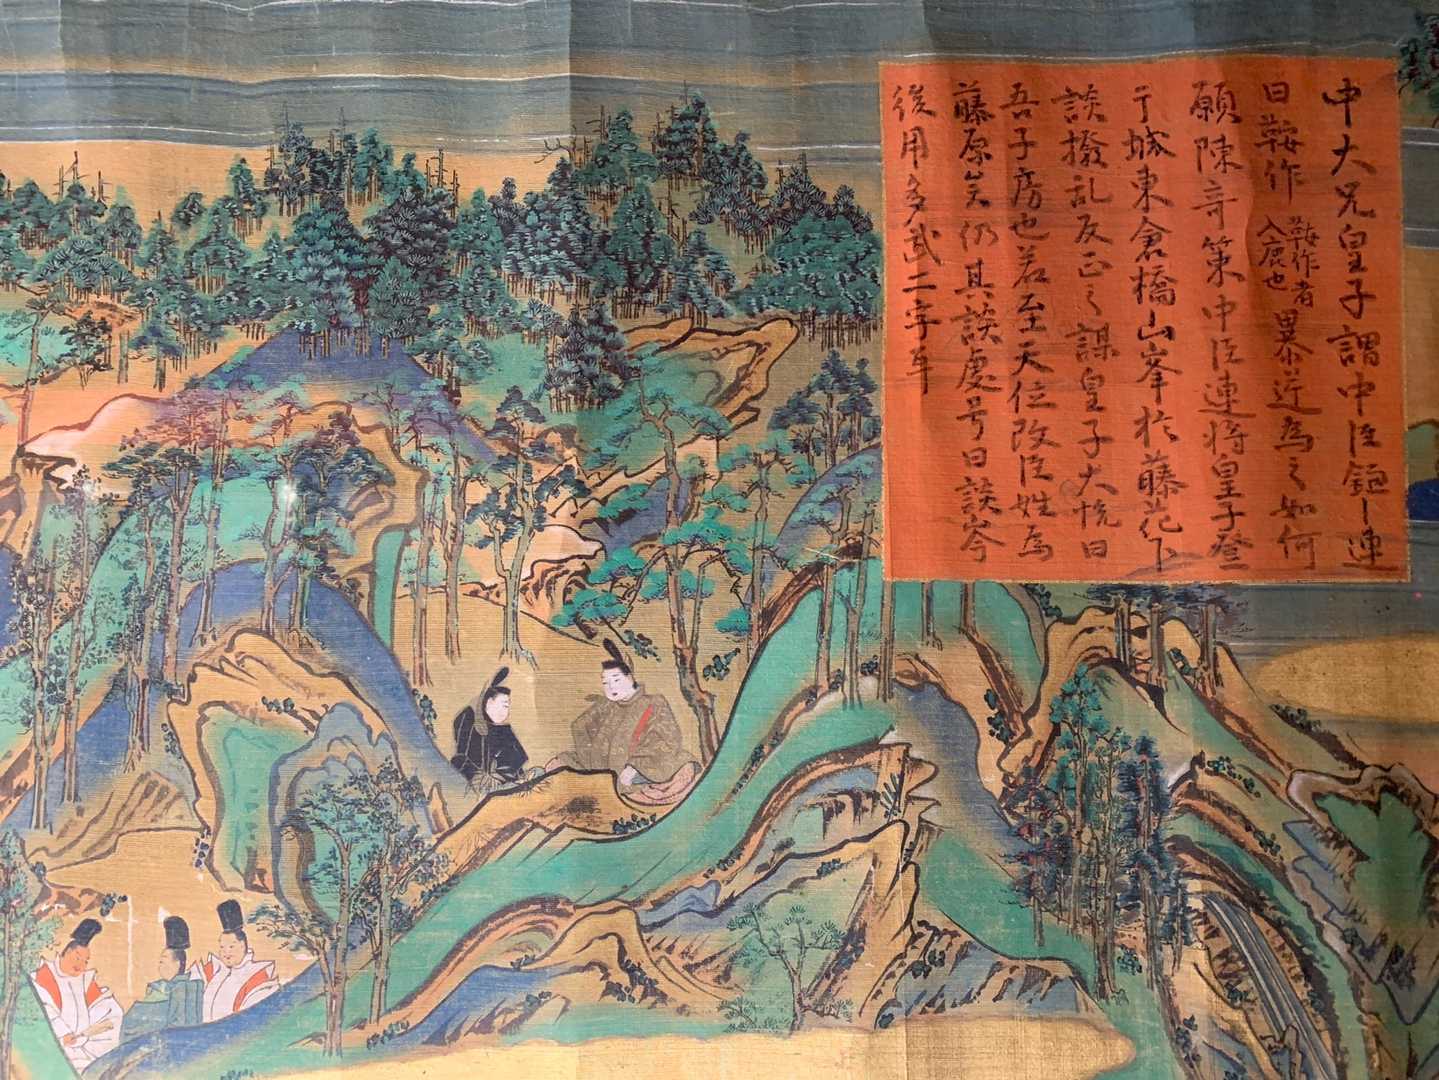 中大兄皇子謂中臣鎌子連
曰鞍作鞍作者入鹿也暴逆為之如何
願陳奇策中臣連将皇子登
于城東倉橋山峯於藤花下
談撥乱反正之謀皇子大悦曰
吾子房也若至天位改臣姓為
藤原矣仍其談處号曰談岑
後用多武二字耳